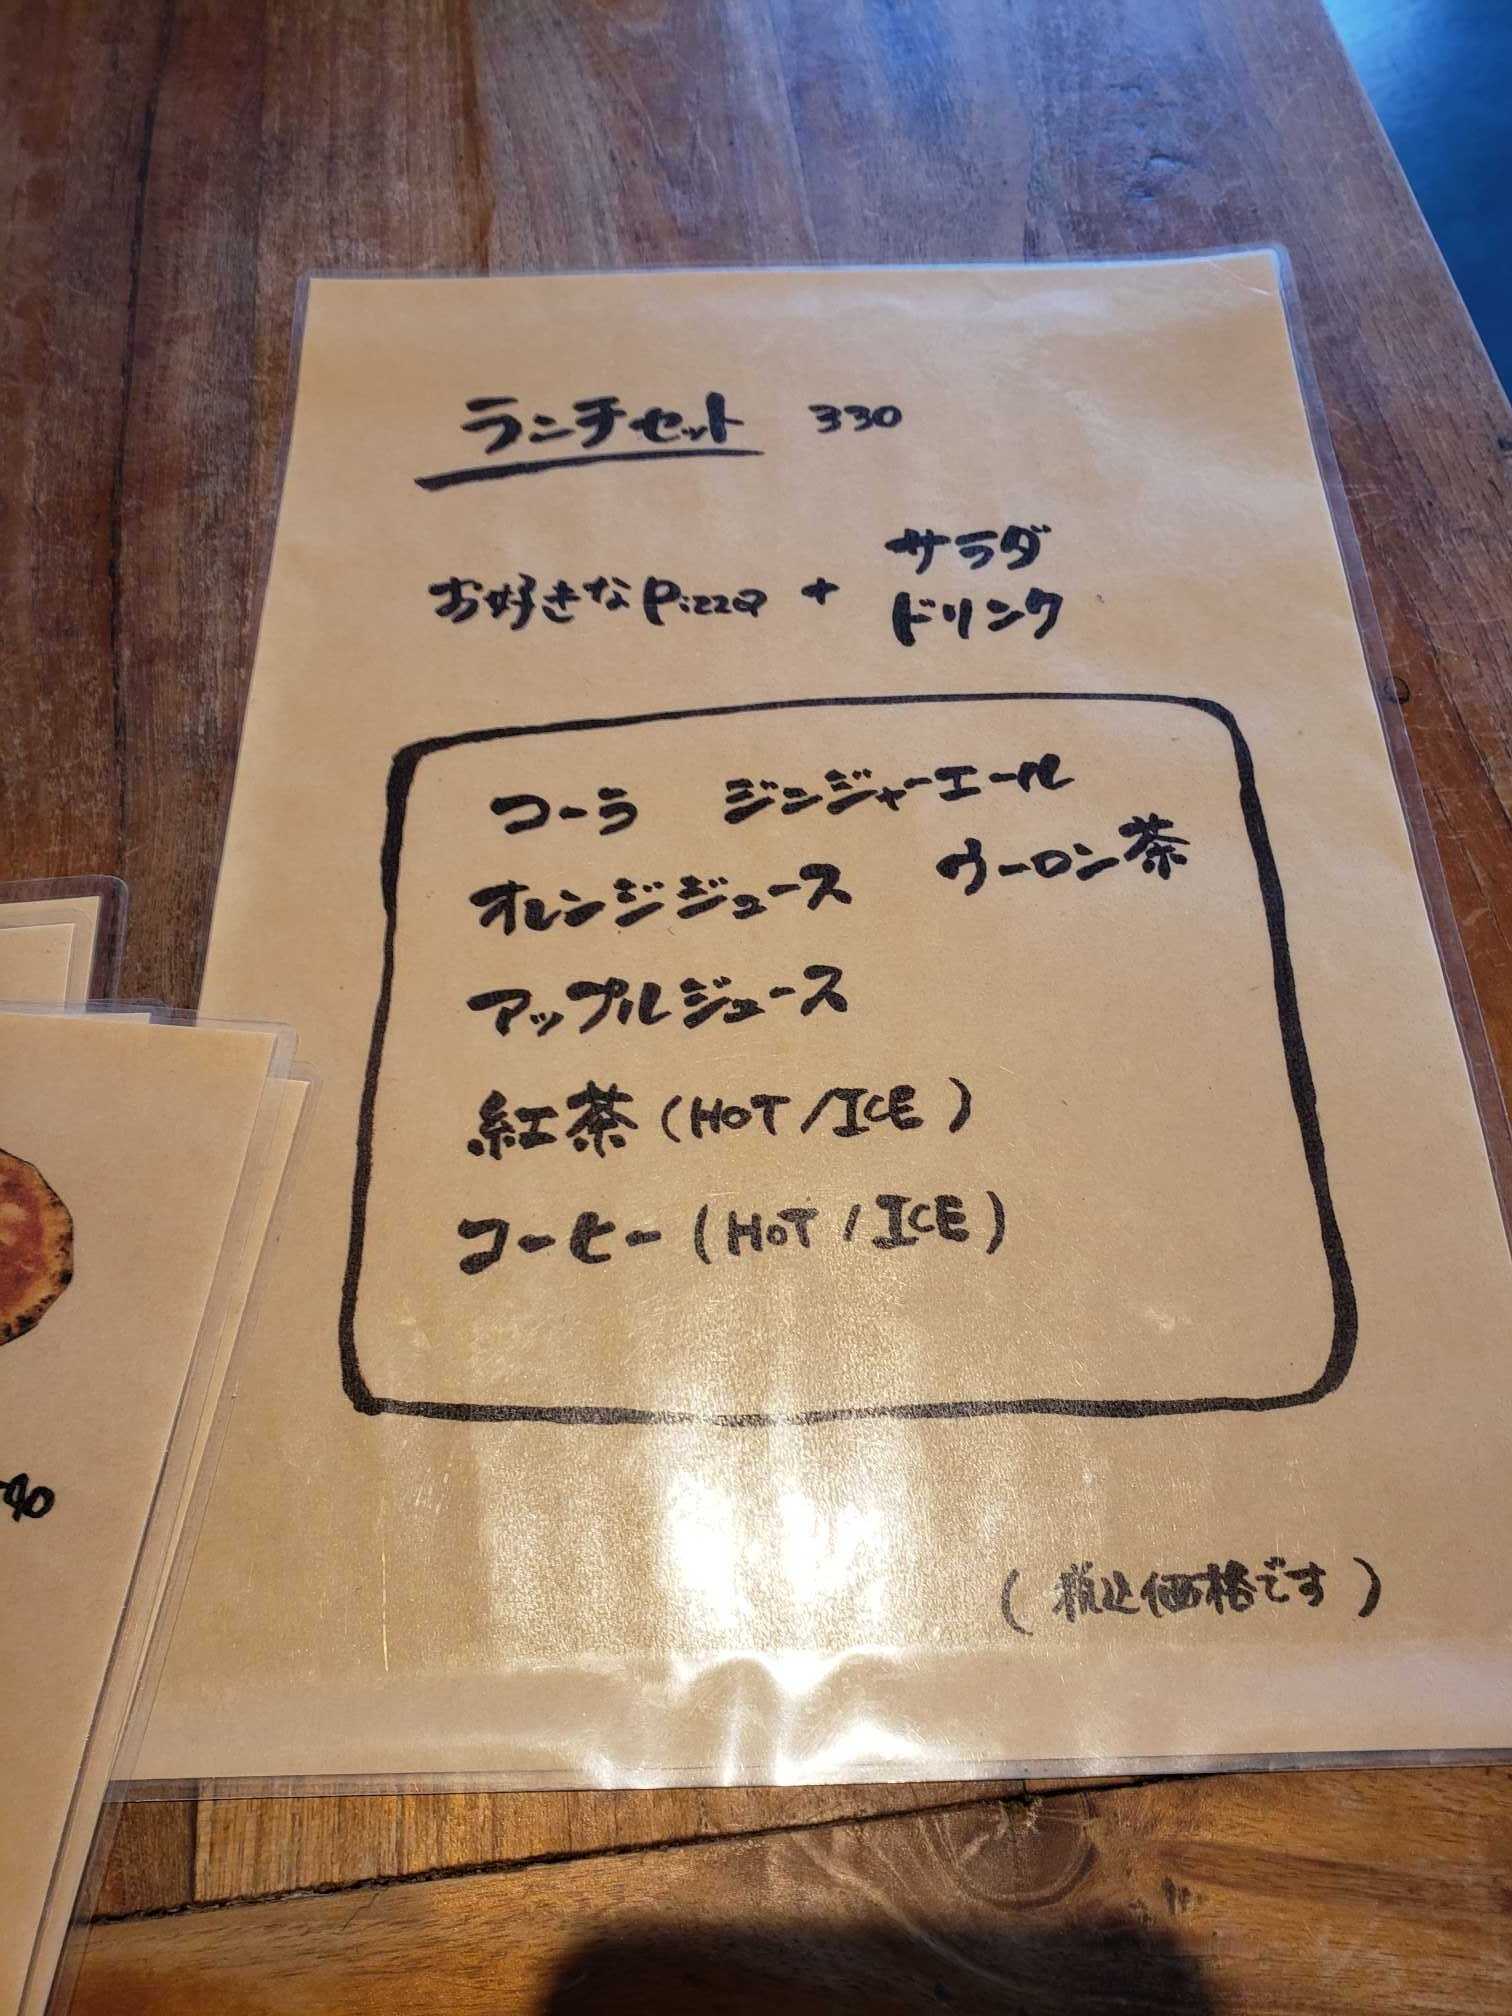 ランチセット 330
お好きなPizza + サラダ
ドリンク
コーラ ジンジャーエール
オレンジジュース ウーロン茶
アップルジュース
紅茶 (HOT / ICE)
コーヒー (HOT / ICE)
(税込価格です)